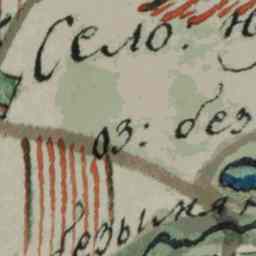 Село:
оз: без
безымян